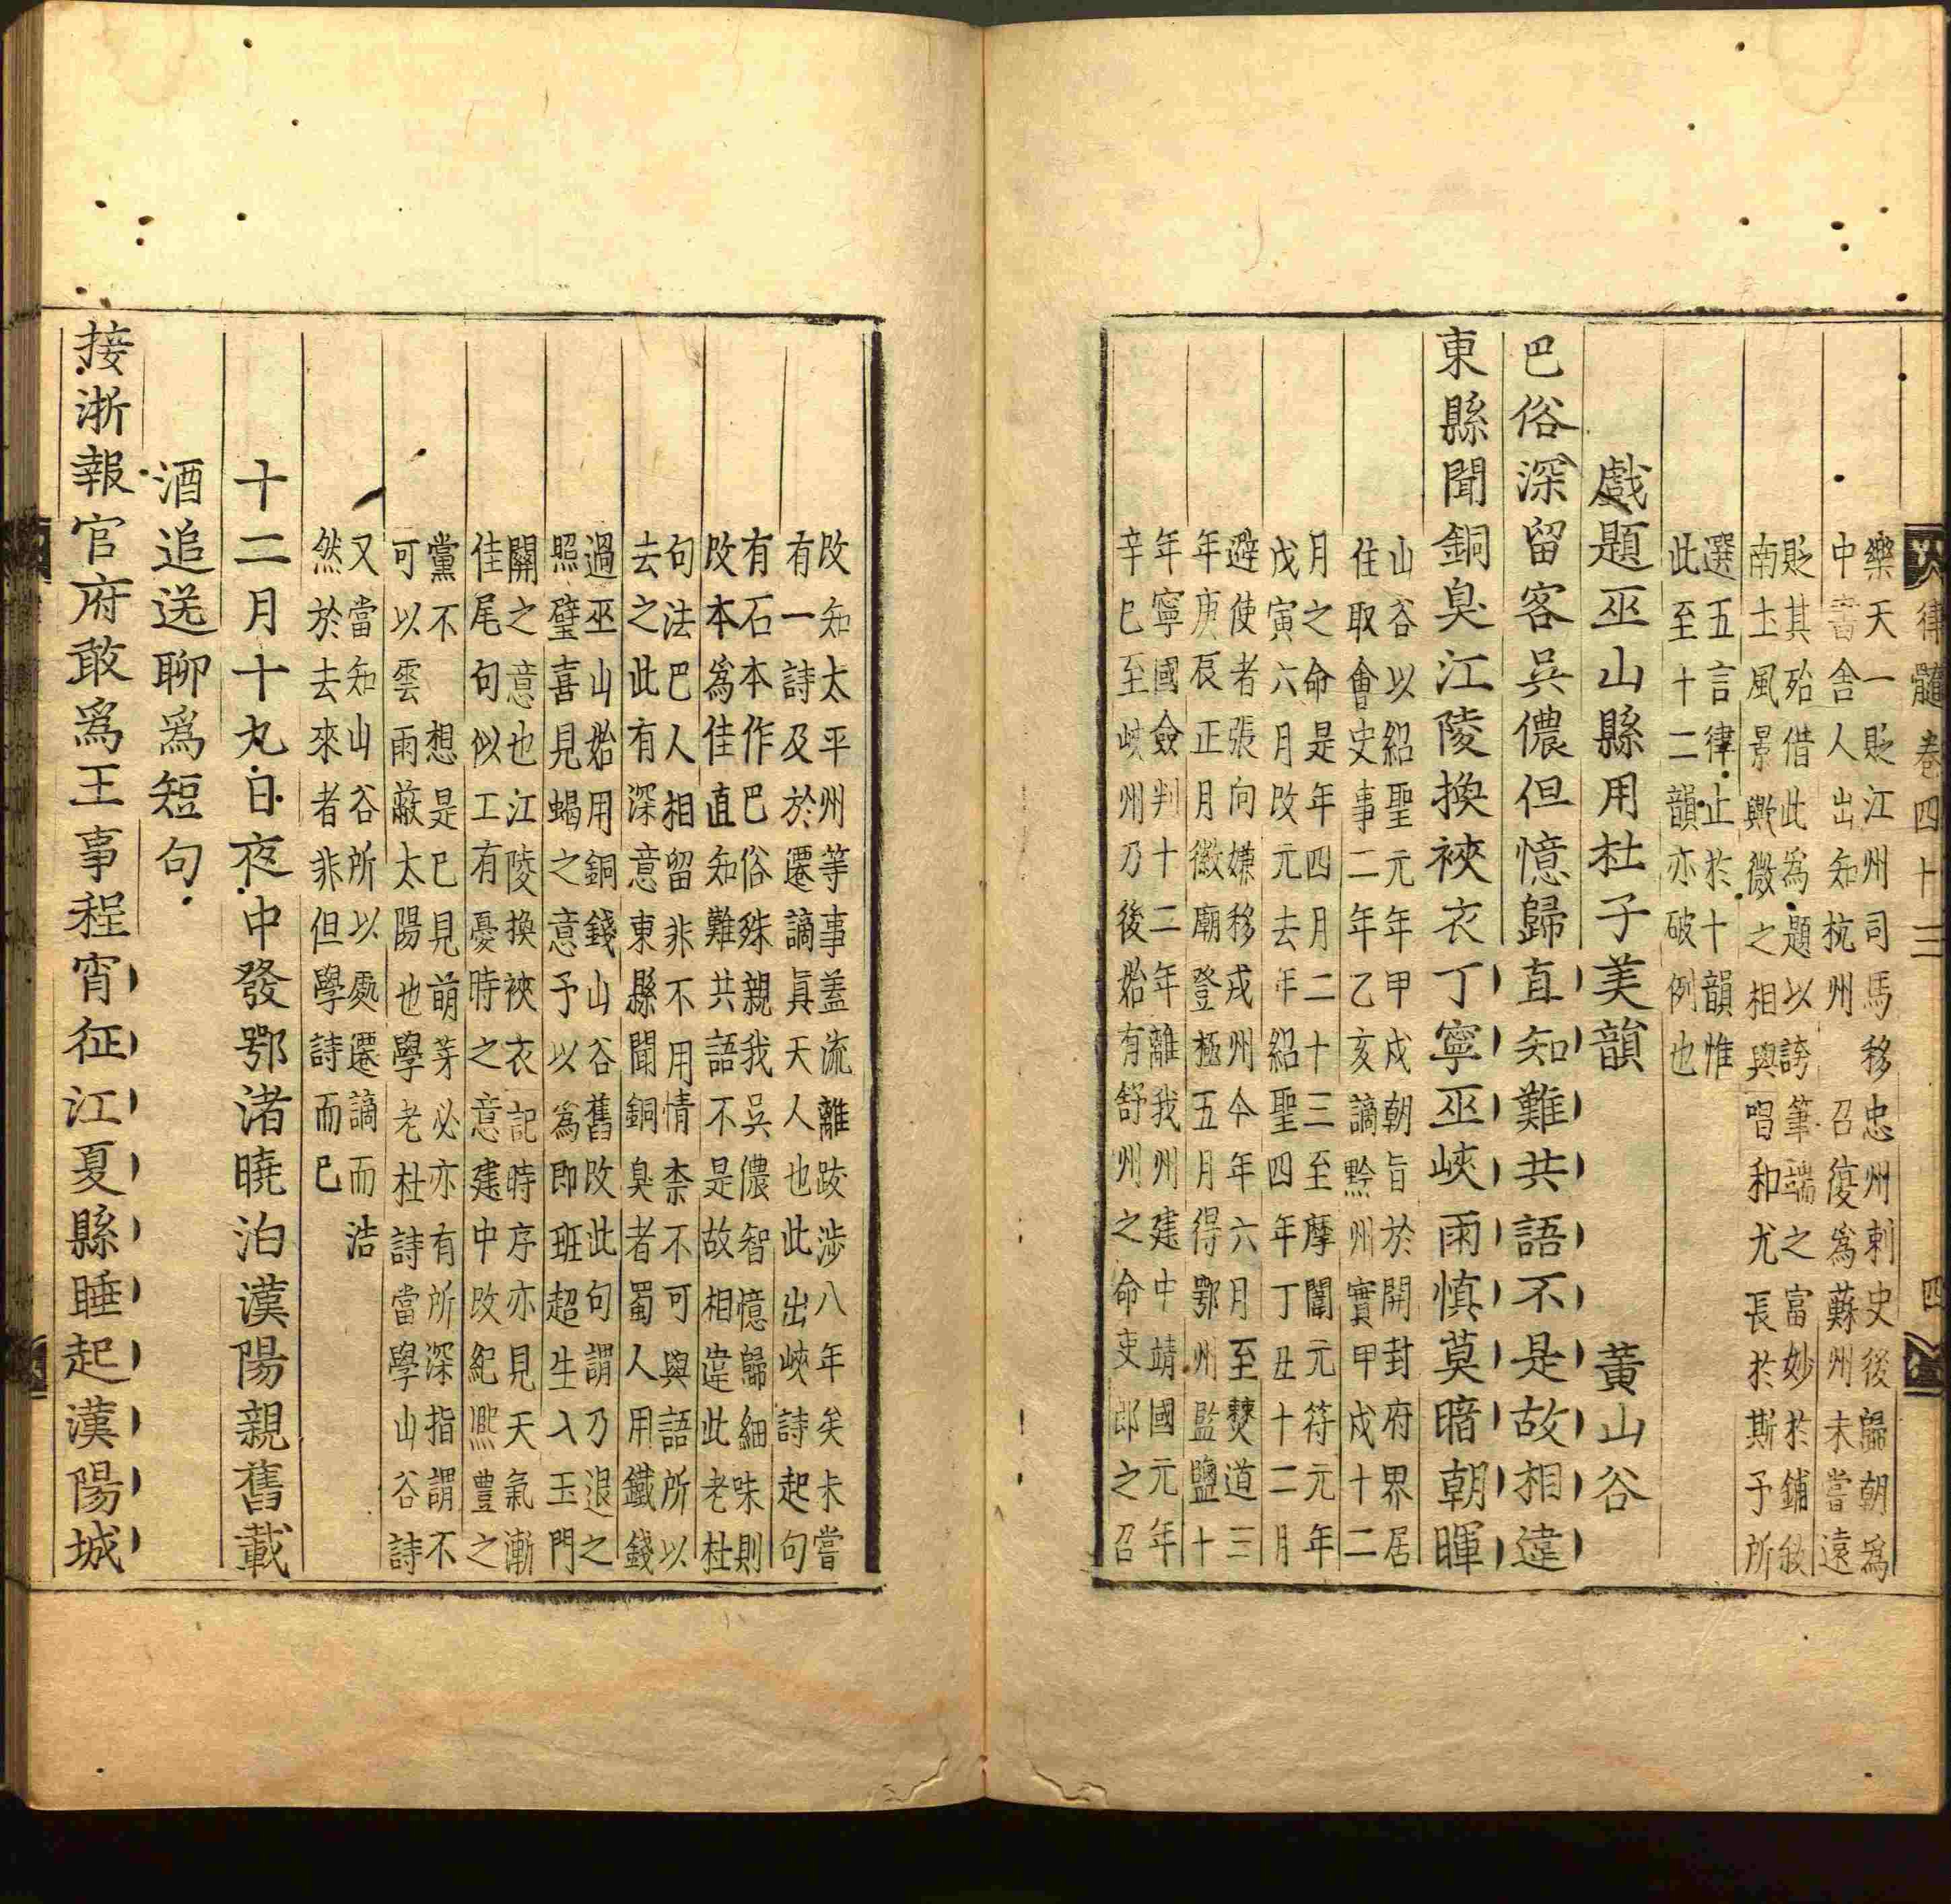 律髓卷四十三 四
樂天一貶江州司馬移忠州刺史後歸朝爲
中書舍人出知杭州召復爲蘇州未嘗遠
貶其殆借此爲題以誇筆端之富妙於鋪敘
南土風景歟微之相與唱和尤長於斯予所
選五言律止於十韻惟
此至十二韻亦破例也
戲題巫山縣用杜子美韻 黃山谷
巴俗深留客吳儂但憶歸直知難共語不是故相違
東縣聞銅臭江陵換裌衣丁寧巫峽雨慎莫暗朝暉
山谷以紹聖元年甲戌朝旨於開封府界居
住取會史事二年乙亥謫黔州實甲戌十二
月之命是年四月二十三至摩闍元符元年
戊寅六月改元去年紹聖四年丁丑十二月
避使者張向嫌移戎州今年六月至僰道三
年庚辰正月徽廟登極五月得鄂州監鹽十
年寧國僉判十二年離我州建中靖國元年
辛巳至峽州乃後始有舒州之命吏郎之召
改知太平州等事蓋流離跋涉八年矣未嘗
有一詩及於遷謫真天人也此出峽詩起句
有石本作巴俗殊親我吳儂智憶歸細味則
改本爲佳直知難共語不是故相違此老杜
句法巴人相留非不用情柰不可與語所以
去之此有深意東縣聞銅臭者蜀人用鐵錢
過巫山始用銅錢山谷舊改此句謂乃退之
照壁喜見蝎之意予以爲即班超生入玉門
關之意也江陵換裌衣記時序亦見天氣漸
佳尾句似工有憂時之意建中改紀熈豐之
黨不 想是已見萌芽必亦有所深指謂不
可以雲雨蔽太陽也學老杜詩當學山谷詩
又當知山谷所以處遷謫而 浩
然於去來者非但學詩而已
十二月十九日夜中發鄂渚曉泊漢陽親舊載
酒追送聊爲短句
接淅報官府敢爲王事程宵征江夏縣睡起漢陽城